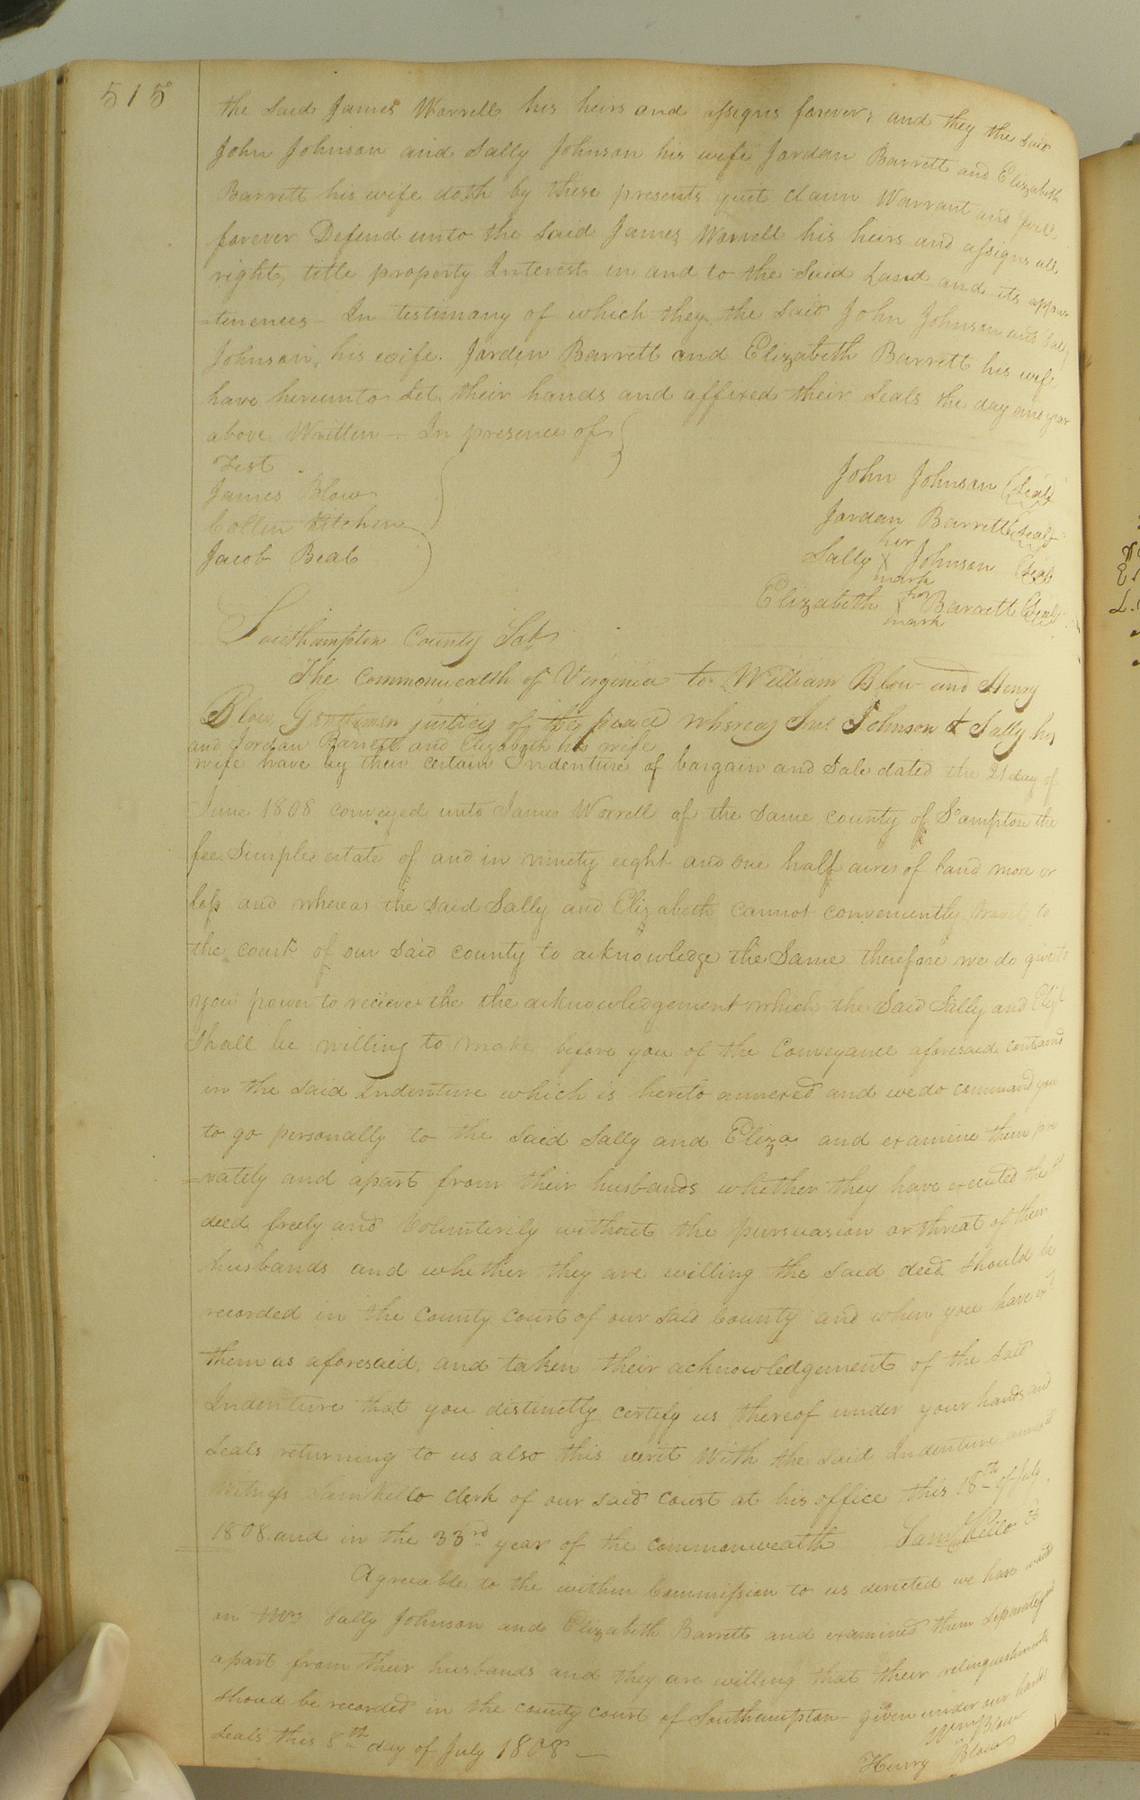 515
the said James Worrell his heirs and assigns forever, and they the said
John Johnson and Sally Johnson his wife Jordan Barrett and Elizabeth
Barrett his wife doth by these presents quit claim Warrant and
forever Defend unto the said James Worrell his heirs and assigns all
right, title property Interest in and to the said Land and its appur
-tenences - In testimony of which they the said John Johnson and Sally
Johnson, his wife. Jorden Barrett and Elizabeth Barrett his wife
have hereunto Set their hands and affixed their Seals the day and year
above Written - In presence of
Test
James Blow
Collin Kitchen
Jacob Beal
John Johnson (Seal)
Jordan Barrett (Seal)
her
Sally X Johnson (Seal)
mark
her
Elizabeth X Barrett (Seal)
mark
Southampton County Sct
The Commonwealth of Virginia to William Blow and Henry
Blow, Gentlemen justices of the peace whereas Jno. Johnson & Sally his
and Jordan Barrett and Elizabeth his wife
wife have by their certain Indenture of bargain and Sale dated the 21 day of
June 1808 conveyed unto James Worrell of the same county of S°ampton the
fee simple estate of and in ninety eight and one half acres of Land more or
less and whereas the said Sally and Elizabeth cannot conveniently travel to
the court of our said county to acknowledge the Same therefore we do give to
you power to recieve the the acknowledgement which the said Sally and Eliza
Shall be willing to make before you of the Conveyance aforesaid contained
in the said Indenture which is hereto annexed and we do command you
to go personally to the said Sally and Eliza and examine them pri
=vately and apart from their husbands whether they have executed the sd
deed freely and Volunterily without the pursuasion or threat of their
husbands and whether they are willing the said deed should be
recorded in the County Court of our said County and when you have exd
them as aforesaid, and taken their acknowledgement of the said
Indenture that you distinctly certify us thereof under your hands and
Seals returning to us also this writ With the said Indenture annexd
Witness Saml Kello clerk of our said court at his office this 18th of July
1808. and in the 33rd year of the commonwealth Saml Kello Cs
Agreeable to the within Commission to us directed we have waited
on Mrs Sally Johnson and Elizabeth Barrett and examined them seperately and
apart from their husbands and they are willing that their relinquishments
Should be recorded in the county court of Southampton - given under our hands
Seals this 8th day of July 1808 -
Wm Blow
Henry Blow